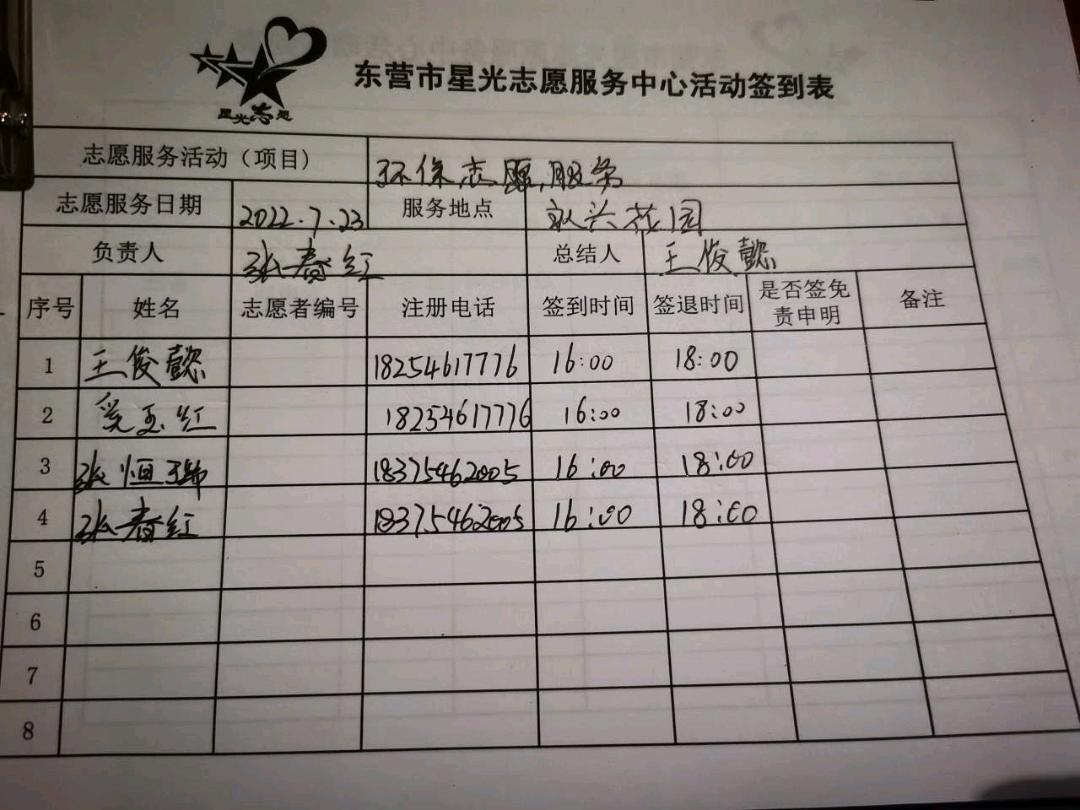 星光志愿
东营市星光志愿服务中心活动签到表
志愿服务活动（项目） 环保志愿服务
志愿服务日期 2022.7.23 服务地点 兴花园
负责人 张春红 总结人 王俊懿
序号 姓名 志愿者编号 注册电话 签到时间 签退时间 是否签免责申明 备注
1 王俊懿 18254617776 16:00 18:00
2 玉红 18254617776 16:00 18:00
3 张恒瑞 18375462005 16:00 18:00
4 张春红 18375462005 16:00 18:00
5
6
7
8